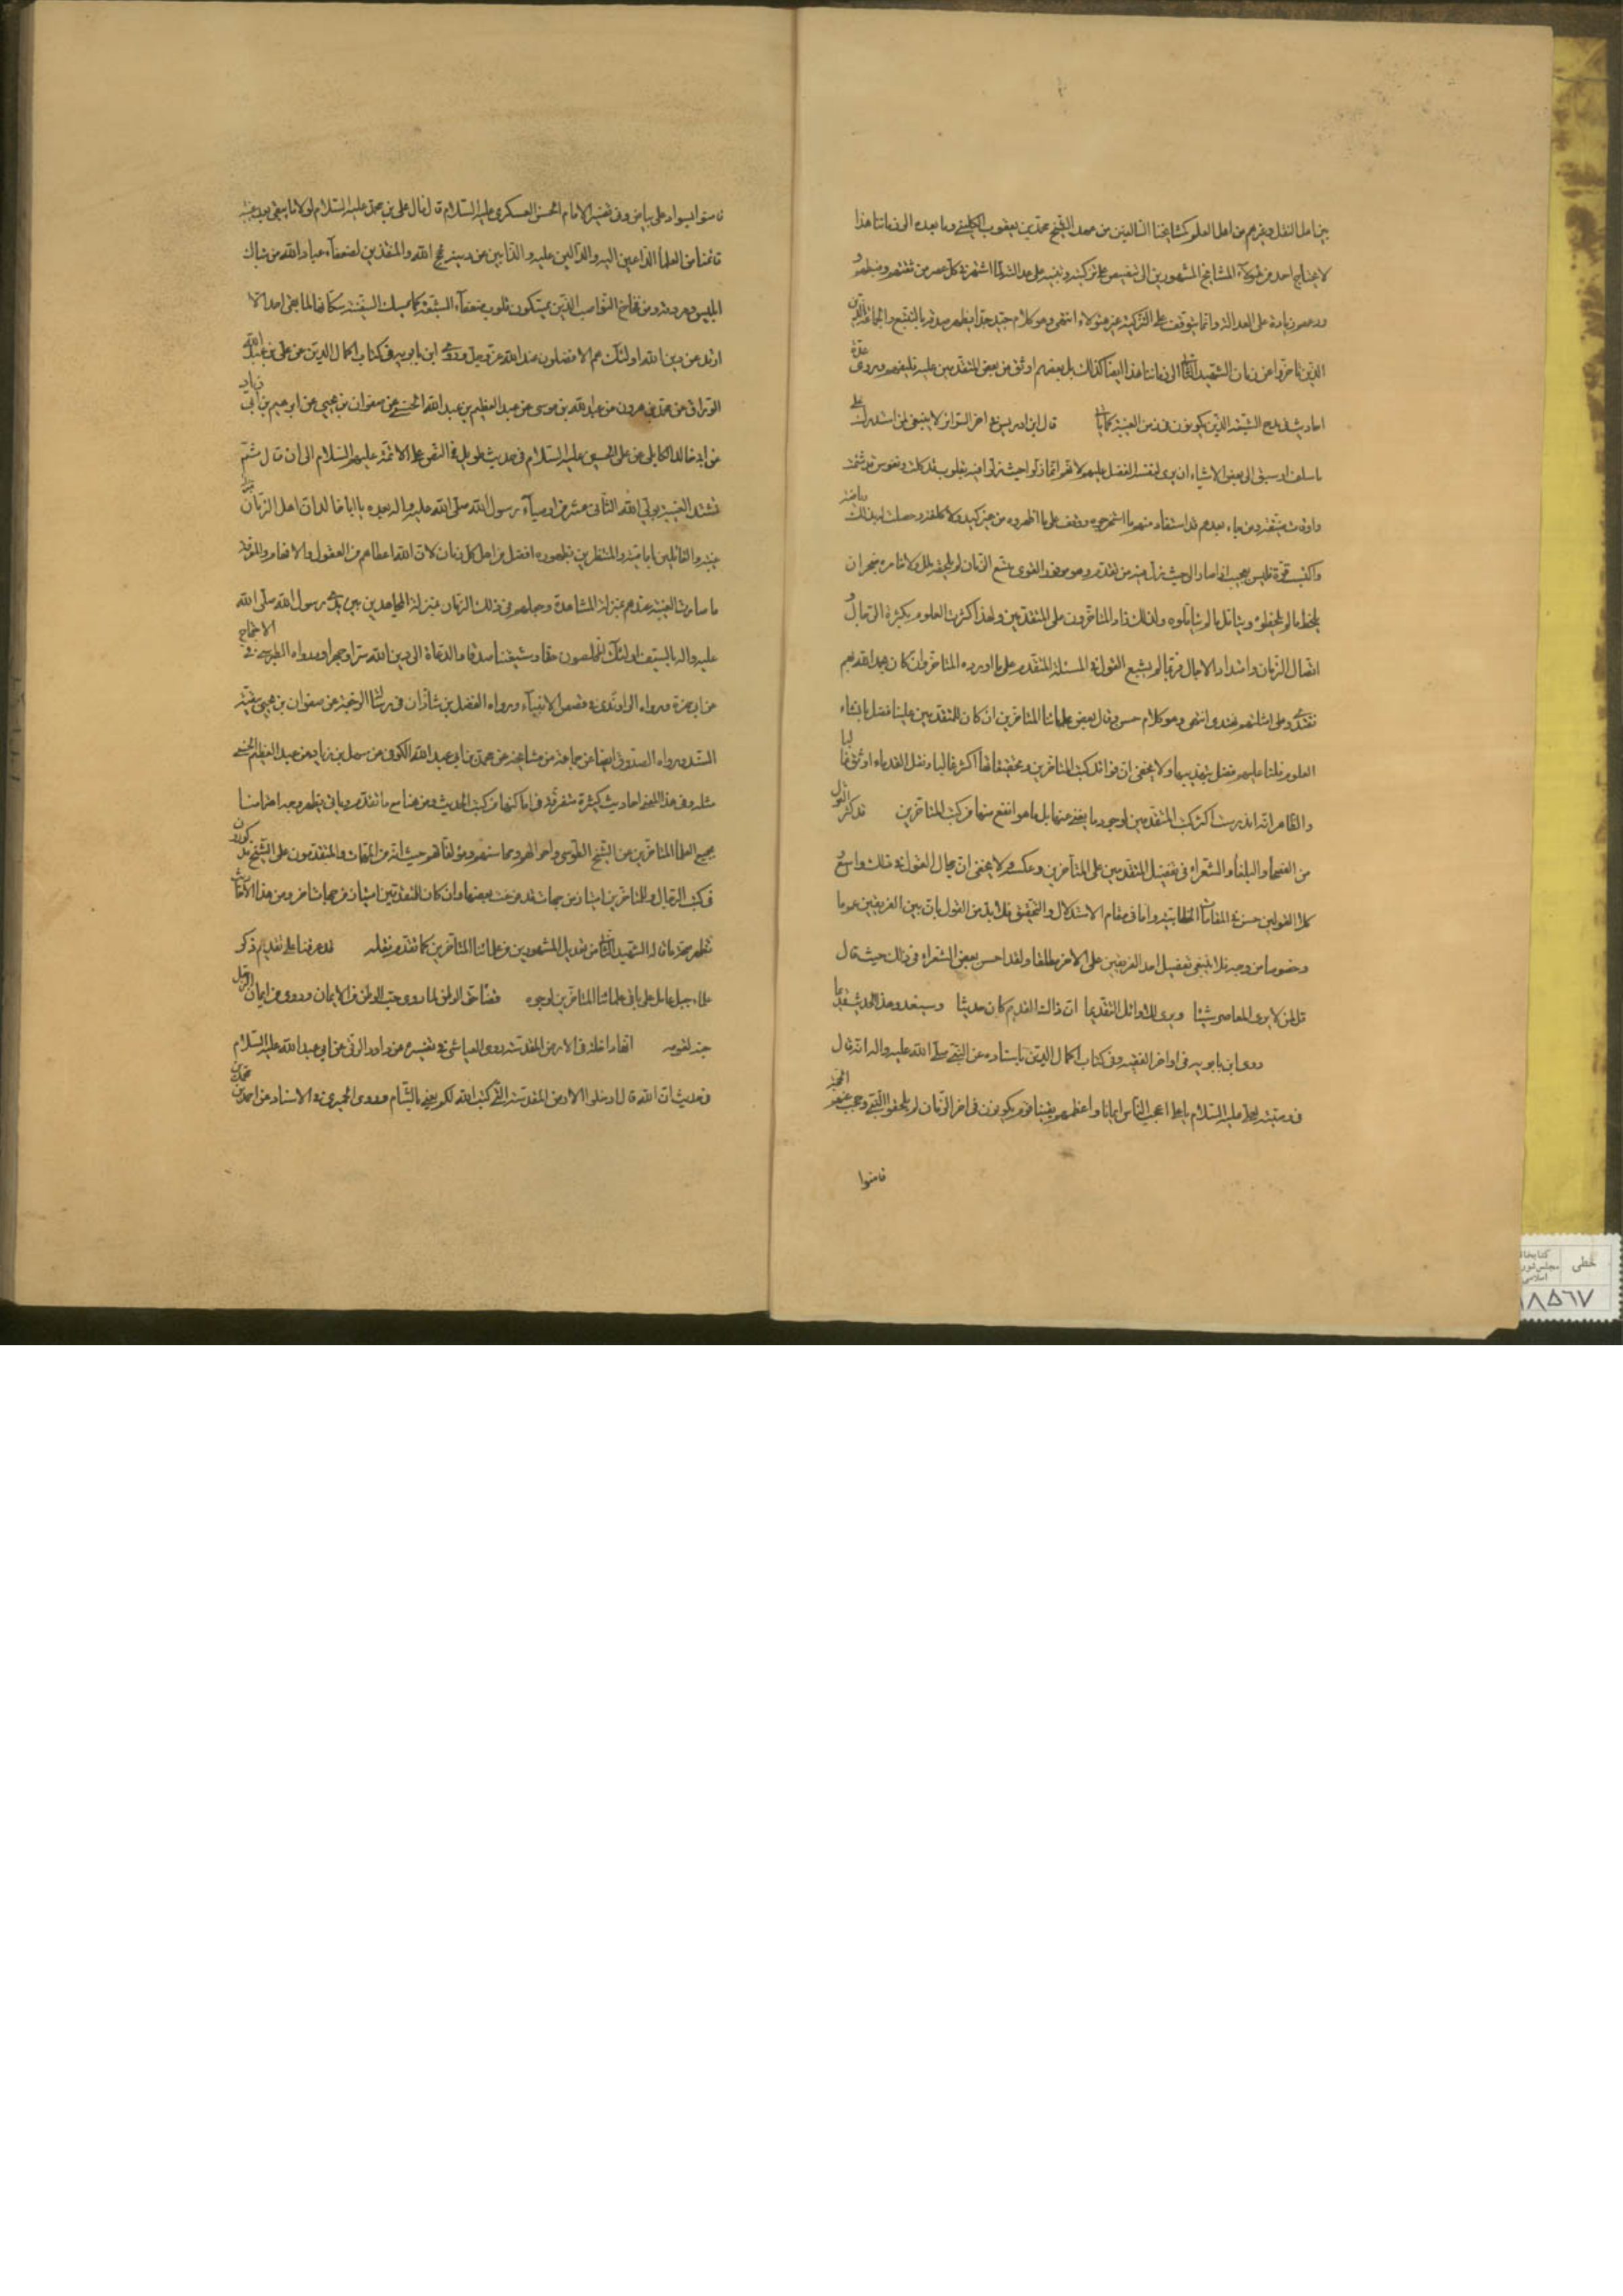 بين اهل النقل وغيرهم من اهل العلم كمشايخنا السالفين من عهد الشيخ محمد بن يعقوب الكليني وما بعده الى زماننا هذا
لا يحتاج احد من هؤلاء المشايخ المشهورين الى تنصيص على تزكيته وتنبيه على عدالته لما اشتهر في كل عصر من ثقتهم وضبطهم و
ورعهم زيادة على العدالة وانما يتوقف على التزكية غير هؤلاء انتهى وهو كلام جيد جدا يظهر صدقه بالتتبع والجماعة الذين
الذين تاخروا عن زمان الشهيد الثاني الى زماننا هذا ايضا كذلك بل بعضهم اوثق من بعض المتقدمين عليه وعليهم ويروى عدة
احاديث في مدح الشيعة الذين يكونون في زمن الغيبة كما ياتي قال ابن ادريس في اخر السرائر لا ينبغي لمن استدرك على
ما سلف او سبق الى بعض الاشياء ان يرى لنفسه الفضل عليهم لانهم انما زلوا حيث زلوا
واوقات ضيقة ومن ياتي بعدهم قد استفاد منهم ما استخرجوه ووقف على ما اظهروه من غير كد ولا كلفة وحصلت له بذلك رياضة
واكتسب قوة فليس بعجب اذا صار الى حيث زل فيه من تقدم وهو موفور القوى متسع الزمان لم يلحقه ملل ولا خامره ضجر ان
يلحظ ما لم يلحظوه ويتامل ما لم يتاملوه ولذلك زاد المتاخرون على المتقدمين ولهذا كثرت العلوم بكثرة الرجال و
اتصال الزمان وامتداد الاجال فربما لم يشبع القول في المسئلة المتقدم على ما اورده المتاخر وان كان بحمد الله بهم
نقتدي وعلى امثلتهم نحتذي انتهى وهو كلام حسن وقال بعض علمائنا المتاخرين ان كان للمتقدمين علينا فضل بانشاء
العلوم فلنا عليهم فضل بتهذيبها ولا يخفى ان فوائد كتب المتاخرين وتحقيقاتها اكثر غالبا ونقل القدماء اوثق غالبا
والظاهر انه اندرست اكثر كتب المتقدمين لوجود ما يغني عنها بل ما هو انفع منها من كتب المتاخرين قد كثر القول
من الفصحاء والبلغاء والشعراء في تفضيل المتقدمين على المتأخرين وعكسه ولا يخفى ان مجال القول في ذلك واسع و
كلا القولين حسن في المقامات الخطابية واما في مقام الاستدلال والتحقيق فلا بد من القول بان بين الفريقين عموما
وخصوصا من وجه فلا ينبغي تفضيل احد الفريقين على الاخر مطلقا ولقد احسن بعض الشعراء في ذلك حيث قال
قل لمن لا يرى المعاصر شيئا ويرى للاوائل التقديما ان ذاك القديم كان حديثا وسيغدو هذا الحديث قديما
روى ابن بابويه في اواخر الفقيه وفي كتاب اكمال الدين باسناده عن النبي صلى الله عليه واله انه قال
في وصيته لعلي عليه السلام يا علي اعجب الناس ايمانا واعظمهم يقينا قوم يكونون في اخر الزمان لم يلحقوا النبي وحجب عنهم الحجة
فامنوا
فامنوا بسواد على بياض وفي تفسير الامام الحسن العسكري عليه السلام قال قال علي بن محمد عليه السلام لولا ما يبقى بعد غيبة
قائمنا من العلماء الداعين اليه والدالين عليه والذابين عن دينه بحجج الله والمنقذين لضعفاء عباد الله من شباك
ابليس ومردته ومن فخاخ النواصب الذين يمسكون قلوب ضعفاء الشيعة كما يمسك السفينة سكانها لما بقي احد الا
ارتد عن دين الله اولئك هم الافضلون عند الله عز وجل وروى ابن بابويه في كتاب اكمال الدين عن علي بن عبد الله
الوراق عن محمد بن هرون عن عبد الله بن موسى عن عبد العظيم بن عبد الله الحسني عن صفوان بن يحيى عن ابرهيم بن ابي زياد
عن ابي خالد الكابلي عن علي بن الحسين عليه السلام في حديث طويل في النص على الائمة عليهم السلام الى ان قال ثم
تشتد الغيبة بولي الله الثاني عشر من اوصياء رسول الله صلى الله عليه واله بعده يا ابا خالد ان اهل الزمان
غيبته والقائلين بامامته والمنتظرين بظهوره افضل من اهل كل زمان لان الله اعطاهم من العقول والافهام والمعرفة
ما صارت الغيبة عندهم بمنزلة المشاهدة وجعلهم في ذلك الزمان بمنزلة المجاهدين بين يدي رسول الله صلى الله
عليه واله بالسيف اولئك المخلصون حقا وشيعتنا صدقا والدعاة الى دين الله سرا وجهرا ورواه الطبرسي في الاحتجاج
عن ابي حمزة ورواه الراوندي في قصص الانبياء ورواه الفضل بن شاذان في رسالة الرجعة عن صفوان بن يحيى ببقية
السند ورواه الصدوق ايضا عن جماعة من مشايخه عن محمد بن ابي عبد الله الكوفي عن سهل بن زياد عن عبد العظيم الحسني
مثله وفي هذا المعنى احاديث كثيرة متفرقة في اماكنها من كتب الحديث ومن هنا مع ما تقدم وياتي يظهر وجه اهتمامنا
بجميع العلماء المتاخرين عن الشيخ الطوسي واحوالهم ومدائحهم ومؤلفاتهم حيث انه من المهمات والمتقدمون على الشيخ مذكورون
في كتب الرجال وللمتاخرين امتياز من جهات قد عرفت بعضها وان كان للمتقدمين امتياز من جهات اخر ومن هذا الاحاديث
تظهر صحة ما قاله الشهيد الثاني من تعديل المشهورين من علمائنا المتاخرين كما تقدم نقله قد عرفنا على تقديم ذكر
علماء جبل عامل على باقي علمائنا المتاخرين لوجوه قضاء حق الوطن لما روي حب الوطن من الايمان وروي من ايمان الرجل
حبه لقومه انها داخلة في الارض المقدسة روى العياشي في تفسيره عن داود الرقي عن ابي عبد الله عليه السلام
في حديث ان الله قال ادخلوا الارض المقدسة التي كتب الله لكم يعني الشام وروى الحميري في قرب الاسناد عن احمد بن محمد
خطی
کتابخانه
مجلس شورای
اسلامی
۱۸۵۶۷